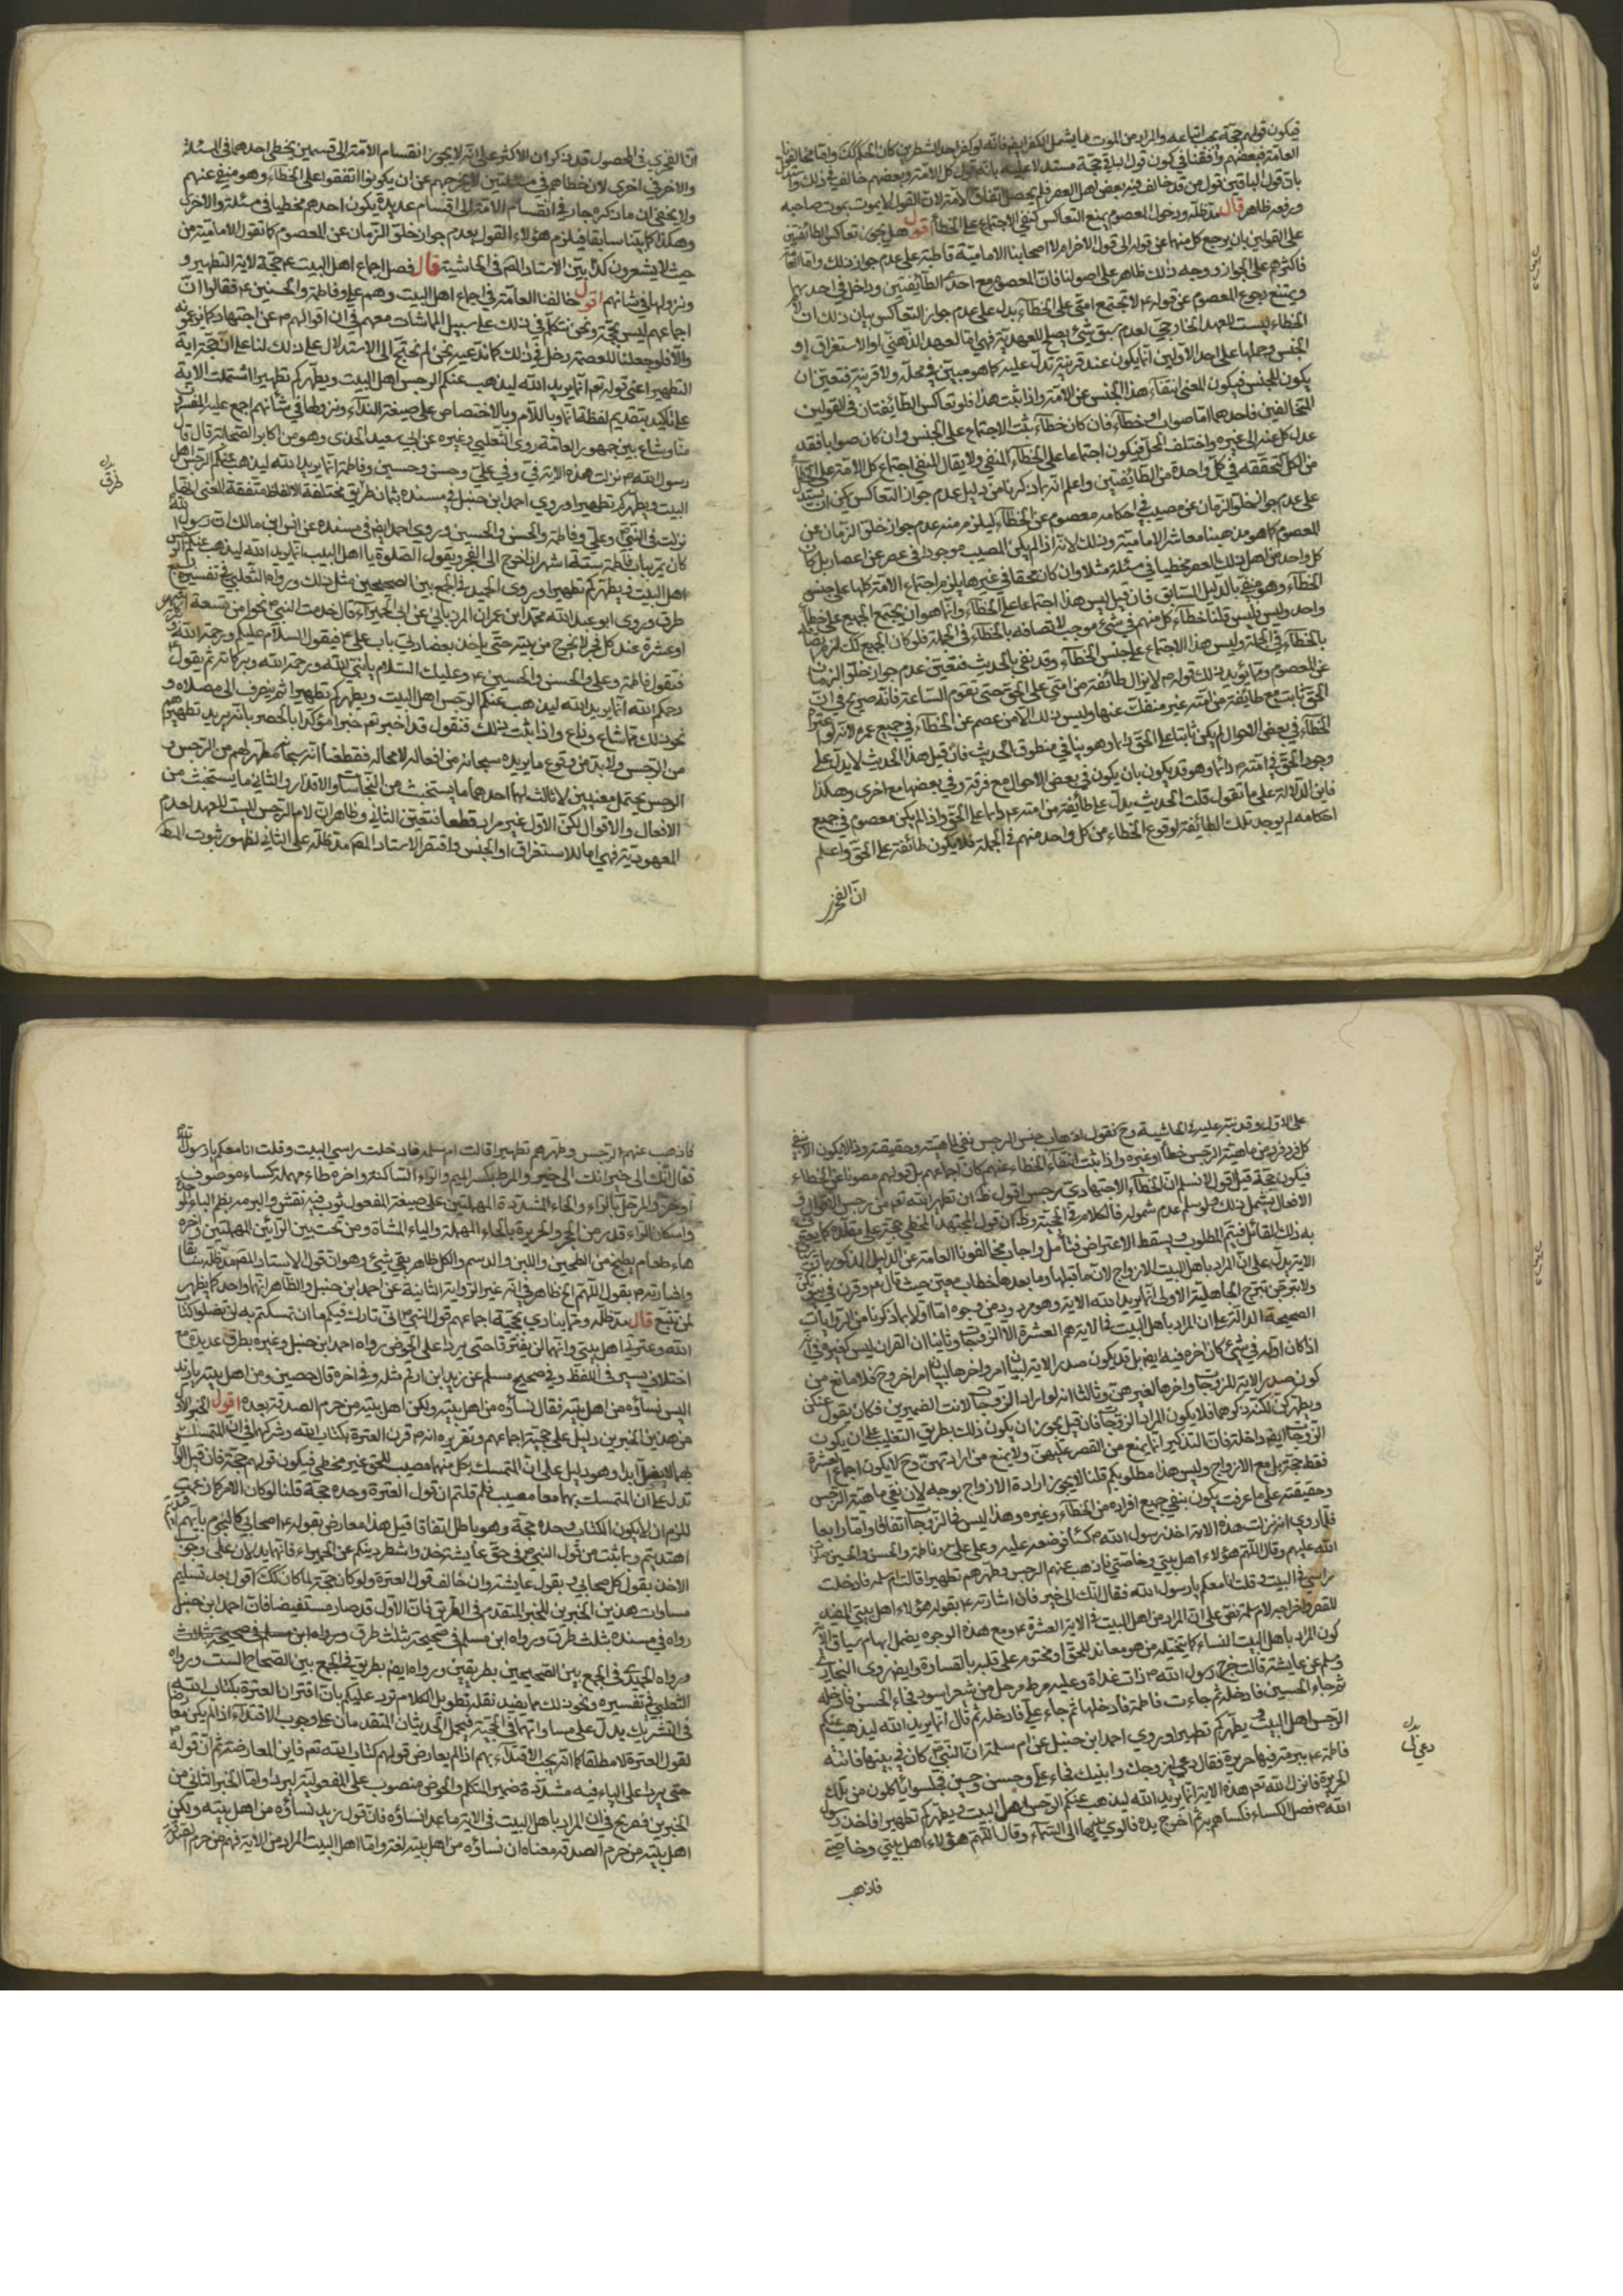 فيكون قولهم حجة بعد اتباعه والمراد من الموت ما يشمل الكفر ايضا فانه لو كفر احد الشطرين كان الحكم كك واما مخالفونا
العامة فبعضهم وافقنا في كون قول الباقي حجة مستدلا عليه بانه قول كل الامة وبعضهم خالف في ذلك واستدل
بان قول الباقين قول من قد خالف فيه بعض اهل العصر فلم يحصل اتفاق الامة لان القول لا يموت بموت صاحبه
ورفعه ظاهر قال مد ظله ودخول المعصوم يمنع التعاكس كنفي الاجتماع على الخطأ اقول هل يجوز تعاكس الطائفتين
على القولين بان يرجع كل منهما عن قوله الى قول الاخر ام لا اصحابنا الامامية قاطبة على عدم جواز ذلك واما العامة
فاكثرهم على الجواز ووجه ذلك ظاهر على اصولنا فان المعصوم مع احدى الطائفتين وداخل في احديهما
ويمتنع رجوع المعصوم عن قوله لا تجتمع امتي على الخطاء يدل على عدم جواز التعاكس بيان ذلك ان
الخطاء ليست للعهد الخارجي لعدم سبق شيء يصلح للعهدية فهي اما للعهد الذهني او الاستغراق او
الجنس وحملها على احد الاولين انما يكون عند قرينة تدل عليه كما هو مبين في محله ولا قرينة فتعين ان
يكون للجنس فيكون المعنى انتفاء هذا الجنس عن الامة واذا ثبت هذا فلو تعاكس الطائفتان في القولين
المتخالفين فاحدهما اما صواب او خطاء فان كان خطاء ثبت الاجتماع على الجنس وان كان صوابا فقد
عدل كل عنه الى غيره واختلف المحل فيكون اجتماعا على الخطاء المنفي ولا يقال المنفي اجتماع كل الامة على الخطأ
من الكل لتحققه في كل واحدة من الطائفتين واعلم انه بما ذكرنا من دليل عدم جواز التعاكس يمكن ان يستدل
على عدم جواز خلو الزمان عن مصيب في احكامه معصوم عن الخطاء فيلزم منه عدم جواز خلو الزمان عن
المعصوم كما هو مذهبنا معاشر الامامية وذلك لانه اذا لم يكن المصيب موجودا في عصر من اعصار بل كان
كل واحد من اهل ذلك العصر مخطيا في مسئلة مثلا وان كان محقا في غيرها يلزم اجتماع الامة كلها على جنس
الخطاء وهو منفي بالدليل السابق فان قيل ليس هذا اجتماعا على الخطاء وانما هو ان يجتمع الجميع على خطأ
واحد وليس فليس قلنا خطاء كل منهم في شيء موجب لاتصافه بالخطاء في الجملة فلو كان الجميع كك لزم اتصافه
بالخطاء في الجملة وليس هذا الاجتماع على جنس الخطاء وقد نفي بالحديث فتعين عدم جواز خلو الزمان
عن المعصوم ومما يؤيد ذلك قوله لا يزال طائفة من امتي على الحق حتى تقوم الساعة فانه صريح في ان
الحق ثابت مع طائفة من امته غير منفك عنها وليس ذلك الا من عصم عن الخطاء في جميع عمره لانه لو اعتراه
الخطاء في بعض الاحوال لم يكن ثابتا على الحق دائما وهو ينافي منطوق الحديث فان قيل هذا الحديث لا يدل على
وجود الحق في امته دائما وهو قد يكون بان يكون في بعض الاحوال مع فرقة وفي بعضها مع اخرى وهكذا
فاين الدلالة على ما تقول قلت الحديث يدل على طائفة من امته دائما على الحق واذا لم يكن معصوم في جميع
احكامه لم يوجد تلك الطائفة لوقوع الخطاء من كل واحد منهم في الجملة فلا يكون طائفة على الحق واعلم
ان الفخر
ان الفخري في المحصول قد ذكر ان الاكثر على انه لا يجوز انقسام الامة الى قسمين يخطي احدهما في المسئلة
والاخر في اخرى لان خطاهم في مسئلتين لا يخرجهم عن ان يكونوا اتفقوا على الخطاء وهو منفي عنهم
ولا يخفى ان ما ذكره جار في انقسام الامة الى اقسام عديدة يكون احدهم مخطيا في مسئلة والاخر في اخرى
وهكذا كما بينا سابقا فيلزم هؤلاء القول بعدم جواز خلو الزمان عن المعصوم كما تقول الامامية من
حيث لا يشعرون كذا بين الاستاد المص في الحاشية قال فصل اجماع اهل البيت حجة لاية التطهير و
ونزولها في شانهم اقول خالفنا العامة في اجماع اهل البيت وهم علي وفاطمة والحسنين فقالوا ان
اجماعهم ليس بحجة ونحن نتكلم في ذلك على سبيل المماشات معهم في ان اقوالهم عن اجتهاد كما يزعمونه
والا فلو جعلنا للعصمة دخل في ذلك كما ندعيه نحن لم نحتج الى الاستدلال على ذلك لنا على انه حجة اية
التطهير اعني قوله تعم انما يريد الله ليذهب عنكم الرجس اهل البيت ويطهركم تطهيرا اشتملت الاية
على تاكيد بتقديم لفظة انما وباللام وبالاختصاص على صيغة النداء ونزولها في شأنهم اجمع عليه المفسرون
منا وشاع بين جمهور العامة روى الثعلبي وغيره عن ابي سعيد الخدري وهو من اكابر الصحابة قال قال
رسول الله نزلت هذه الاية في وفي علي وحسن وحسين وفاطمة انما يريد الله ليذهب عنكم الرجس اهل
البيت ويطهركم تطهيرا وروى احمد ابن حنبل في مسنده بثمان طريق مختلفة الالفاظ متفقة المعنى انها
نزلت في النبي وعلي وفاطمة والحسن والحسين وروى احمد ايضا في مسنده عن انس ابن مالك ان رسول الله
كان يمر بباب فاطمة ستة اشهر اذا خرج الى الفجر ويقول الصلوة يا اهل البيت انما يريد الله ليذهب عنكم الرجس
اهل البيت ويطهركم تطهيرا وروى الحميدي في الجمع بين الصحيحين مثل ذلك ورواه الثعلبي في تفسيره
طرق وروى ابو عبد الله محمد ابن عمران المرزباني عن ابي الحمراء قال خدمت النبي نحوا من تسعة اشهر
او عشرة عند كل فجر لا يخرج من بيته حتى ياخذ بعضادتي باب علي فيقول السلام عليكم ورحمة الله
فتقول فاطمة وعلي والحسن والحسين وعليك السلام يا نبي الله ورحمة الله وبركاته ثم يقول
رحمكم الله انما يريد الله ليذهب عنكم الرجس اهل البيت ويطهركم تطهيرا ثم ينصرف الى مصلاه و
نحو ذلك مما شاع وذاع واذا ثبت ذلك فنقول قد اخبر تعم خبرا مؤكدا بالحصر بانه يريد تطهيرهم
من الرجس ولا بد من وقوع ما يريده سبحانه من افعاله لا محالة فقطعنا انه سبحانه مطهر لهم من الرجس و
الرجس يحتمل معنيين لا ثالث لهما احدهما ما يستخبث من النجاسات والاقذار والثاني ما يستخبث من
الافعال والاقوال لكن الاول غير مراد قطعا فتعين الثاني وظاهر ان لام الرجس ليست للعهد لعدم
المعهودية فهي اما للاستغراق او الجنس واقتصر الاستاد المص مد ظله على الثاني لظهور ثبوت المط
على الاول وقد نبه عليه في الحاشية وح نقول اذهاب جنس الرجس نفي لماهيته وحقيقته وذا لا يكون الا بنفي
كل فرد فرد من ماهية الرجس خطأ او غيره واذا ثبت انتفاء الخطاء عنهم كان اجماعهم بل قولهم مصونا عن الخطاء
فيكون حجة قيل اقول لا نسلم ان الخطاء الاجتهادي رجس اقول ظ ان تطهير الله تعم من رجس الاقوال و
الافعال يشمل ذلك ولو سلم عدم شموله فالكلام في الحجية وظ ان قول المجتهد المخطي حجة على مقلده كما يعترف
به ذلك القائل فيتم المطلوب ويسقط الاعتراض فتأمل واجاب مخالفونا العامة عن الدليل المذكور بان سياق
الاية يدل على ان المراد باهل البيت الازواج لان ما قبلها وما بعدها خطاب معهن حيث قال تعم وقرن في بيوتكن
ولا تبرجن تبرج الجاهلية الاولى انما يريد الله الاية وهو مردود من وجوه اما اولا بما ذكرنا من الروايات
الصحيحة الدالة على ان المراد باهل البيت في الاية هم العشرة لا الزوجات وثانيا ان القران ليس كغيره في انه
اذا كان اوله في شيء كان اخره فيه ايضا بل قد يكون صدر الاية لبيان امر واخرها لبيان امر اخر وح فلا مانع من
كون صدر الاية للزوجات واخرها لغيرهن وثالثا انه لو اراد الزوجات لانث الضميرين فكان يقول عنكن
ويطهركن لكنه ذكرهما فلا يكون المراد الزوجات فان قيل يجوز ان يكون ذلك بطريق التغليب على ان يكون
الزوجات ايضا داخلة فان التذكير انما يمنع من القصر عليهن ولا يمنع من ارادتهن وح لا يكون اجماع العشرة
فقط حجة بل مع الازواج وليس هذا مطلوبكم قلنا لا يجوز ارادة الازواج بوجه لان نفي ماهية الرجس
وحقيقته على ما عرفت يكون بنفي جميع افراده من الخطاء وغيره وهذا ليس في الزوجات اتفاقا واما رابعا
فلما روي انه نزلت هذه الاية اخذ رسول الله كساء فوضعه عليه وعلى علي وفاطمة والحسن والحسين صلوات
الله عليهم وقال اللهم هؤلاء اهل بيتي وخاصتي فاذهب عنهم الرجس وطهرهم تطهيرا قالت ام سلمة فادخلت
راسي في البيت وقلت انا معكم يا رسول الله فقال انك الى خير فان اشارته بقوله هؤلاء اهل بيتي المفيد
للقصر واخراجه لام سلمة نص على ان المراد من اهل البيت في الاية العشرة ومع هذه الوجوه يضمحل ايهام سياق الاية
كون المراد باهل البيت النساء كما يتخيله من هو معاند للحق او مختوم على قلبه بالقساوة وايضا روى البخاري
ومسلم عن عايشة قالت خرج رسول الله ذات غداة وعليه مرط مرحل من شعر اسود فجاء الحسن فادخله
ثم جاء الحسين فادخله ثم جاءت فاطمة فادخلها ثم جاء علي فادخله ثم قال انما يريد الله ليذهب عنكم
الرجس اهل البيت ويطهركم تطهيرا وروى احمد ابن حنبل عن ام سلمة ان النبي كان في بيتها فاتته
فاطمة ببرمة فيها حريرة فقال ادعي لي زوجك وابنيك فجاء علي وحسن وحسين فجلسوا ياكلون من تلك
الحريرة فانزل الله تعم هذه الاية انما يريد الله ليذهب عنكم الرجس اهل البيت ويطهركم تطهيرا فاخذ رسول
الله فضل الكساء فكساهم به ثم اخرج يده فالوى بها الى السماء وقال اللهم هؤلاء اهل بيتي وخاصتي
فاذهب
فاذهب عنهم الرجس وطهرهم تطهيرا قالت ام سلمة فادخلت راسي البيت وقلت انا معكم يا رسول الله
فقال انك الى خير انك الى خير والمرط بكسر الميم والراء الساكنة واخره طاء مهملة كساء من صوف
او خز والمرحل بالراء والحاء المشددة المهملتين على صيغة المفعول ثوب فيه نقش والبرمة بضم الباء الموحدة
واسكان الراء قدر من الحجر والحريرة بالحاء المهملة والياء المثناة ومن تحت بين الرائين المهملتين واخره
هاء طعام يطبخ من الطحين واللبن والدسم والكل ظاهر بقي شيء وهو ان قول الاستاد المص مد ظله سابقا
واشارته بقول اللهم الخ ظاهر في انه غير الرواية الثانية عن احمد ابن حنبل والظاهر انهما واحد كما يظهر
لمن تتبع قال مد ظله ومما ينادي بحجية اجماعهم قول النبي اني تارك فيكم ما ان تمسكتم به لن تضلوا كتاب
الله وعترتي اهل بيتي وانهما لن يفترقا حتى يردا علي الحوض رواه احمد ابن حنبل وغيره بطرق عديدة مع
اختلاف يسير في اللفظ وفي صحيح مسلم عن زيد ابن ارقم مثله وفي اخره قال حصين ومن اهل بيته يا زيد
اليس نساؤه من اهل بيته فقال نساؤه من اهل بيته ولكن اهل بيته من حرم الصدقة بعده اقول الخبر الاول
من هذين الخبرين دليل على حجية اجماعهم وتقريره انه قرن العترة بكتاب الله وشركهما في ان المتمسك
بهما لا يضل ابدا وهو دليل على ان المتمسك بكل منهما مصيب للحق غير مخطي فيكون قولهم حجة فان قيل
تدل على ان المتمسك بهما معا مصيب فلم قلتم ان قول العترة وحده حجة قلنا لو كان الامر كما زعمت
للزم ان لا يكون الكتاب وحده حجة وهو باطل اتفاقا قيل هذا معارض بقوله اصحابي كالنجوم بايهم اقتديتم
اهتديتم وبما ثبت من قول النبي في حق عايشة خذوا شطر دينكم عن الحميراء فانهما يدلان على وجوب
الاخذ بقول كل صحابي وبقول عايشة وان خالف قول العترة ولو كان حجة لما كان كك اقول بعد تسليم
مساوات هذين الخبرين للخبر المتقدم في الطريق فان الاول قد صار مستفيضا فان احمد ابن حنبل
رواه في مسنده بثلث طرق ورواه ابن مسلم في صحيحه بثلث طرق
ورواه الحميدي في الجمع بين الصحيحين بطريقين ورواه ايضا بطريق في الجمع بين الصحاح الست ورواه
الثعلبي في تفسيره ونحو ذلك مما يفيد نقله تطويل الكلام نورد عليكم بان اقتران العترة بكتاب الله
في التشريك يدل على مساواتهما في الحجية فيحمل الحديثان المتقدمان على وجوب الاقتداء اذا لم يكن معارضا
لقول العترة لا مطلقا كما انه يجب الاقتداء بهم اذا لم يعارض قولهم كتاب الله تعم فاين المعارضة ثم ان قوله
حتى يردا علي الياء فيه مشددة ضمير المتكلم والحوض منصوب على المفعولية ليردا واما الخبر الثاني من
الخبرين فصريح في ان المراد باهل البيت في الاية ما عدا نساؤه فان قول زيد نساؤه من اهل بيته ولكن
اهل بيته من حرم الصدقة معناه ان نساؤه من اهل بيته لغة واما اهل البيت المراد من الاية فهم من حرم الصدقة